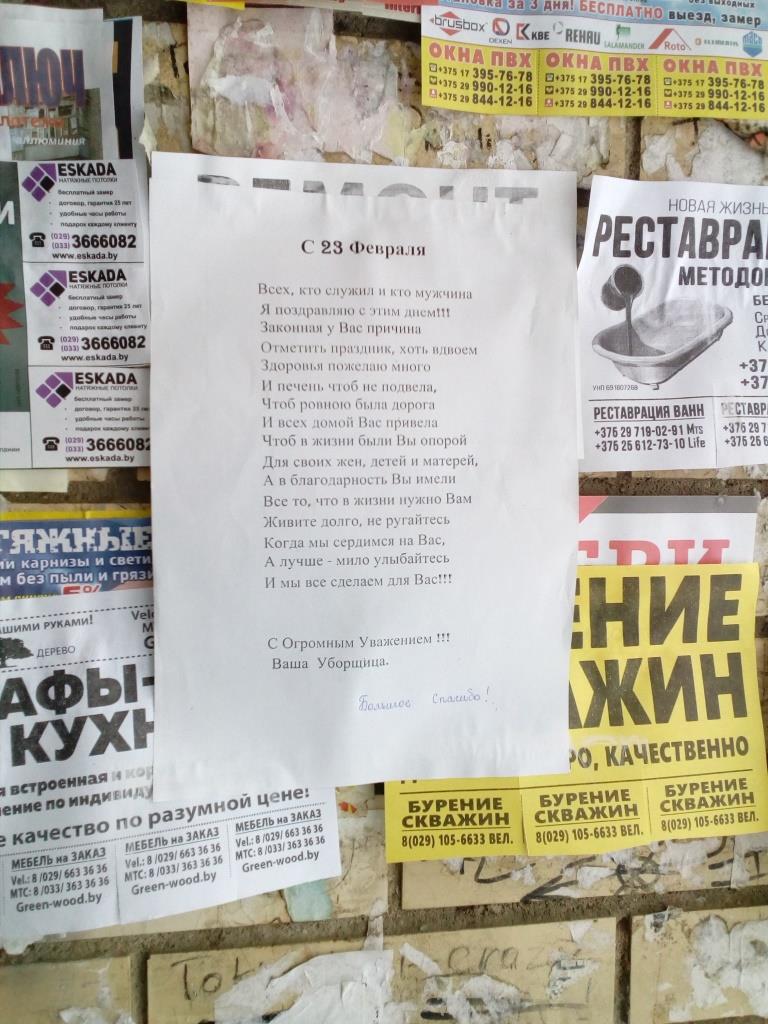 новка за 3 дня! БЕСПЛАТНО выезд, замер
brusbox DEXEN KBE REHAU SALAMANDER Roto
ОКНА ПВХ ОКНА ПВХ ОКНА ПВХ
+375 17 395-76-78 +375 17 395-76-78 +375 17 395-76-78
+375 29 990-12-16 +375 29 990-12-16 +375 29 990-12-16
+375 29 844-12-16 +375 29 844-12-16 +375 29 844-12-16
ЛЮЧ
аллюминия
ESKADA
НАТЯЖНЫЕ ПОТОЛКИ
бесплатный замер
договор, гарантия 25 лет
удобные часы работы
подарок каждому клиенту
(029) (033) 3666082
www.eskada.by
ESKADA
НАТЯЖНЫЕ ПОТОЛКИ
бесплатный замер
договор, гарантия 25 лет
удобные часы работы
подарок каждому клиенту
(029) (033) 3666082
www.eskada.by
ESKADA
НАТЯЖНЫЕ ПОТОЛКИ
бесплатный замер
договор, гарантия 25 лет
удобные часы работы
подарок каждому клиенту
(029) (033) 3666082
www.eskada.by
РЕМОНТ
С 23 Февраля
Всех, кто служил и кто мужчина
Я поздравляю с этим днем!!!
Законная у Вас причина
Отметить праздник, хоть вдвоем
Здоровья пожелаю много
И печень чтоб не подвела,
Чтоб ровною была дорога
И всех домой Вас привела
Чтоб в жизни были Вы опорой
Для своих жен, детей и матерей,
А в благодарность Вы имели
Все то, что в жизни нужно Вам
Живите долго, не ругайтесь
Когда мы сердимся на Вас,
А лучше - мило улыбайтесь
И мы все сделаем для Вас!!!
С Огромным Уважением !!!
Ваша Уборщица.
Большое Спасибо!
НОВАЯ ЖИЗНЬ
РЕСТАВРА
МЕТОДО
УНП 691807268
РЕСТАВРАЦИЯ ВАНН
+376 29 719-02-91 Мts
+376 26 612-73-10 Life
ТЯЖНЫЕ
и карнизы и свети
м без пыли и грязи
5%
АШИМИ РУКАМИ!
ДЕРЕВО
Velc
АФЫ-
КУХН
я встроенная и кор
ление по индивиду
е качество по разумной цене!
МЕБЕЛЬ на ЗАКАЗ МЕБЕЛЬ на ЗАКАЗ МЕБЕЛЬ на ЗАКАЗ
Vel.: 8 /029/ 663 36 36 Vel.: 8 /029/ 663 36 36 Vel.: 8 /029/ 663 36 36
МТС: 8 /033/ 363 36 36 МТС: 8 /033/ 363 36 36 МТС: 8 /033/ 363 36 36
Green-wood.by Green-wood.by Green-wood.by
ЕРИ
ЕНИЕ
АЖИН
РО, КАЧЕСТВЕННО
БУРЕНИЕ БУРЕНИЕ БУРЕНИЕ
СКВАЖИН СКВАЖИН СКВАЖИН
8(029) 105-6633 ВЕЛ. 8(029) 105-6633 ВЕЛ. 8(029) 105-6633 ВЕЛ.